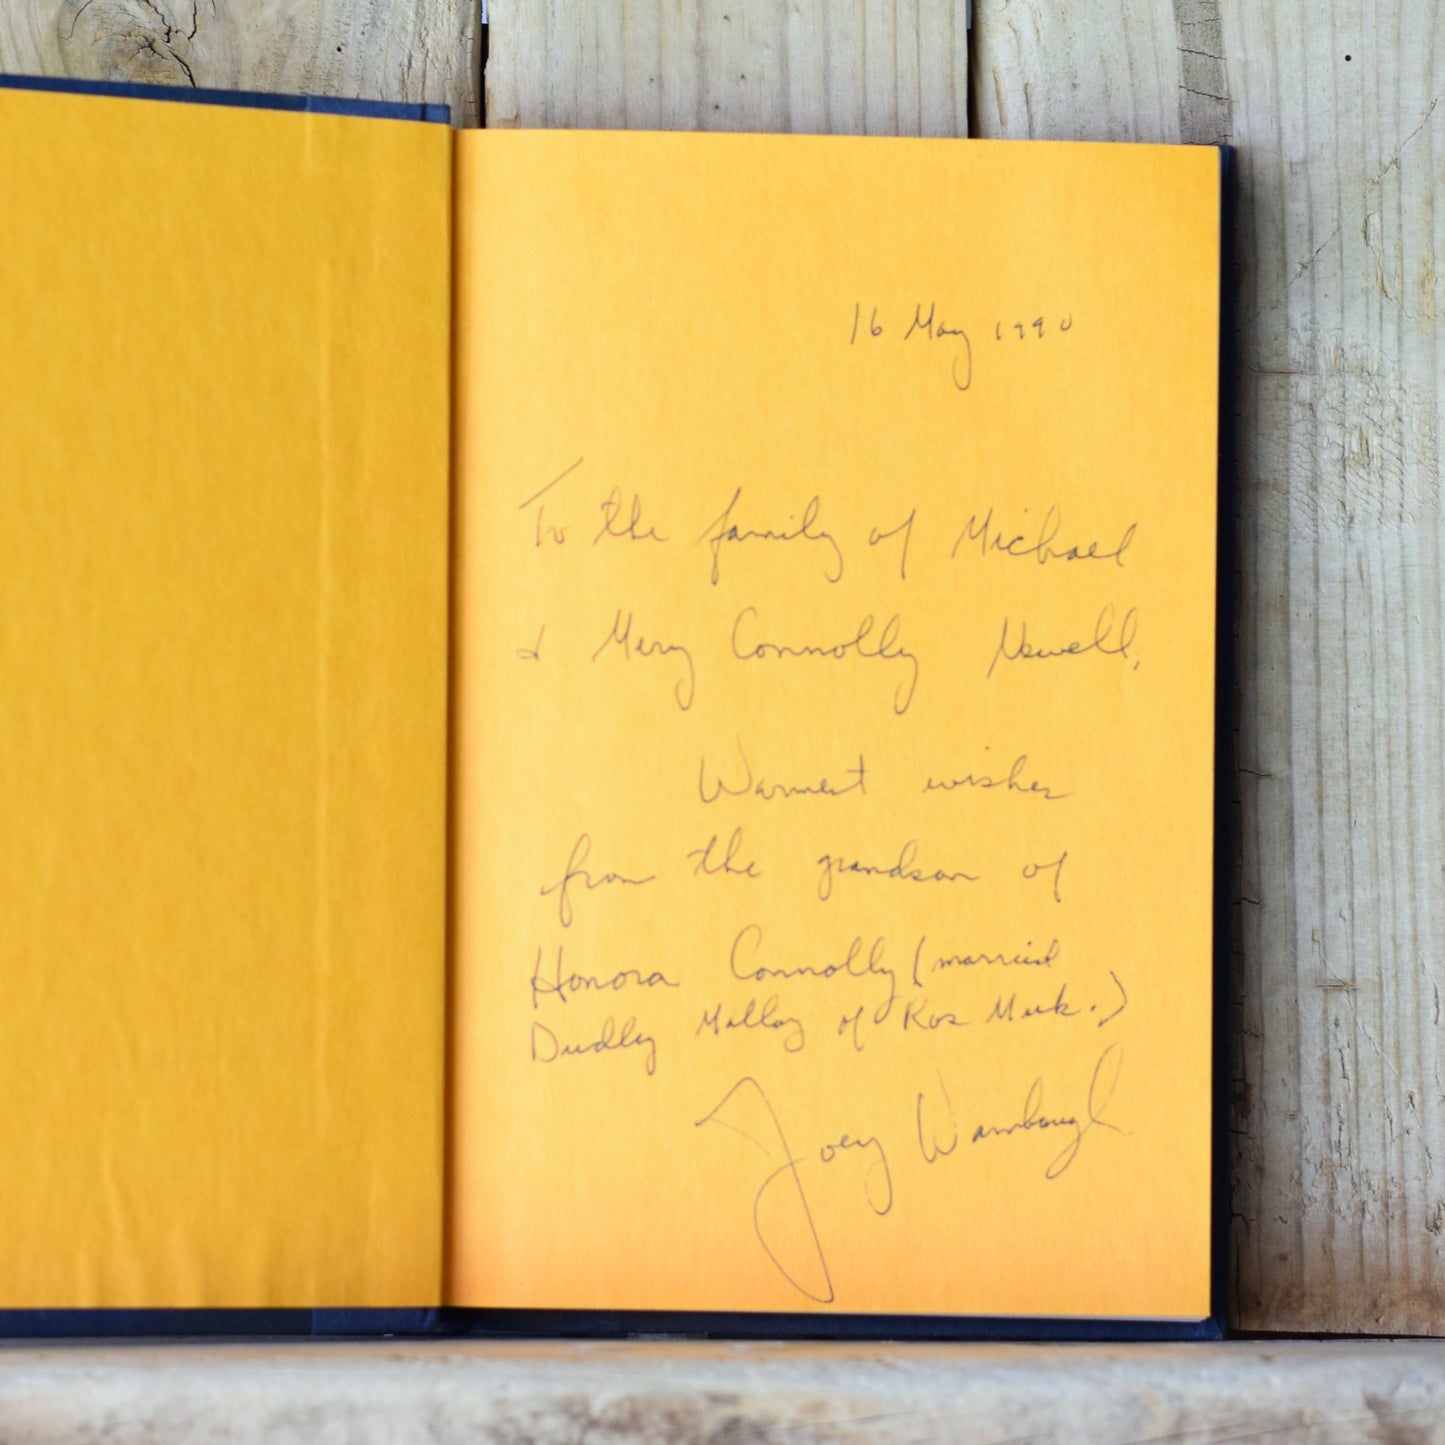 16 May 1990
To the family of Michael
& Mary Connolly Newell,
Warmest wishes
from the grandson of
Honora Connolly (married
Dudley Malloy of Ros Muck.)
Joey Wambaugh